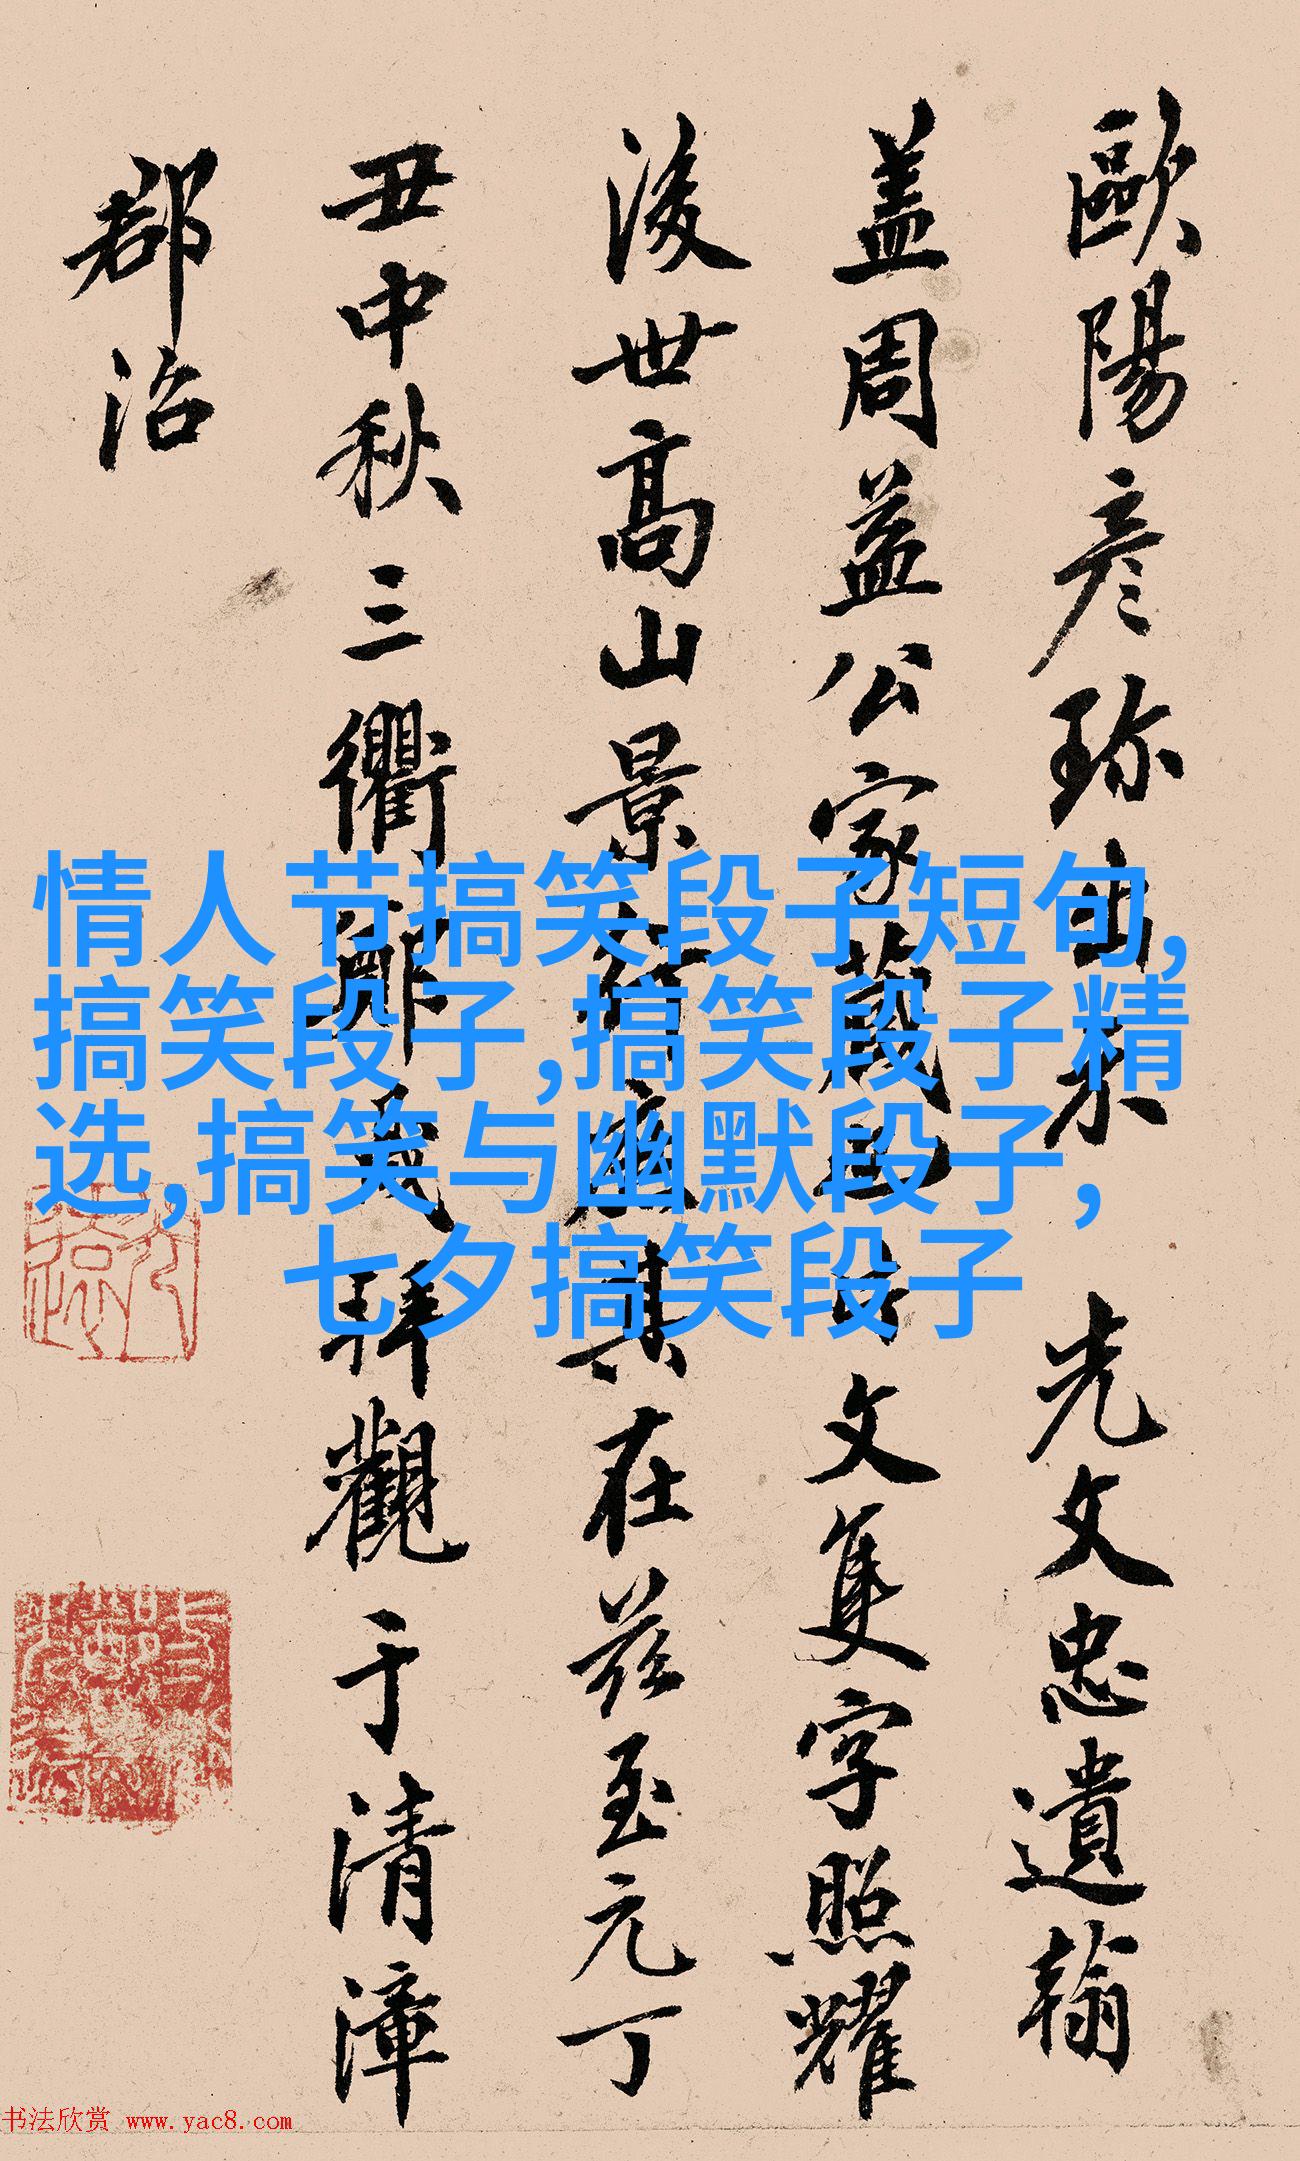 歐陽彥珍出 光文忠遺翰
盖周益公家藏也 文隻字照耀
後世高山景行庶其在兹至元丁
丑中秋三衢 拜觀于清漳
郡治
情人节搞笑段子短句,
搞笑段子,搞笑段子精
选,搞笑与幽默段子,
七夕搞笑段子
书法欣赏 www.yac8.com